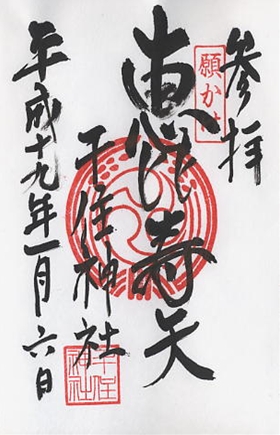 参拝
願かけ
恵彼寿天
千住神社
千住神社
平成十九年一月六日